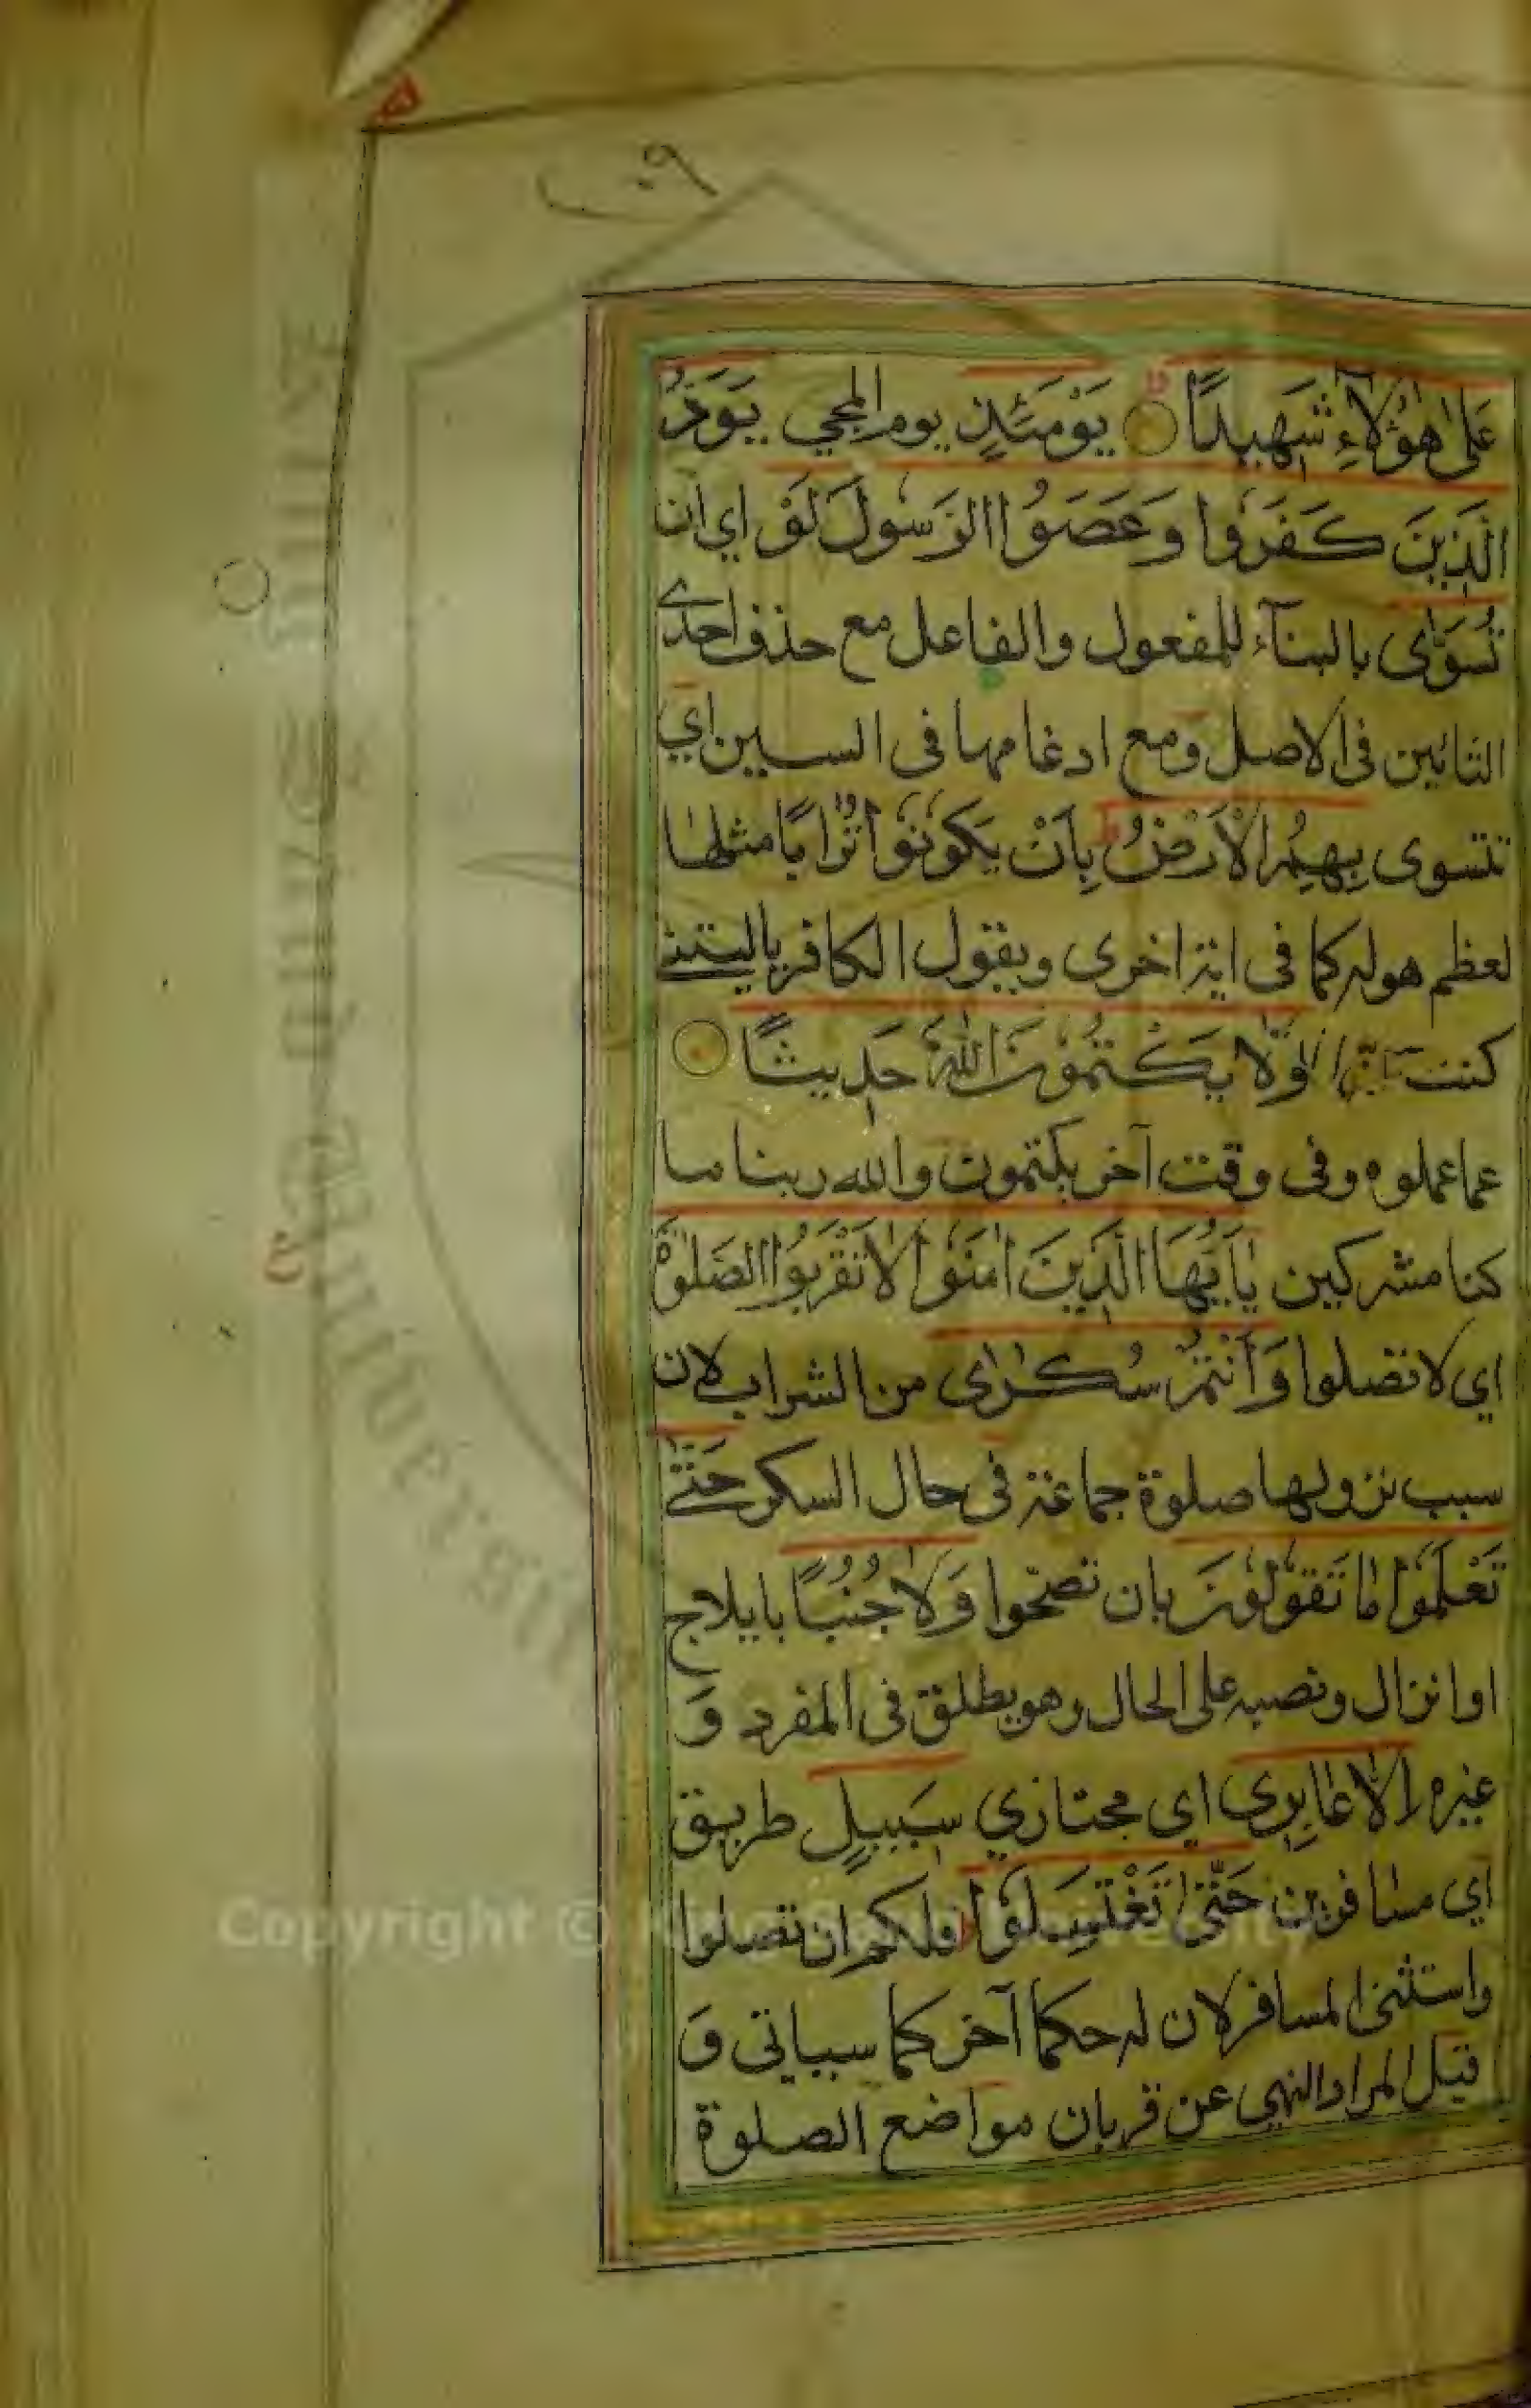 عَلٰى هٰؤُلَآءِ شَهِيدًا يَوْمَئِذٍ يوم المجي يَوَدُّ
الَّذِينَ كَفَرُوا وَعَصَوُا الرَّسُولَ لَوْ اي ان
تُسَوّٰى بالبنآء للمفعول والفاعل مع حذف احدى
التائين فى الاصل ومع ادغامها فى السين اي
تتسوى بِهِمُ الْاَرْضُ بِاَنْ يَكُونُوا تُرَابًا مثلها
لعظم هوله كما فى اية اخرى ويقول الكافر ياليتنى
كنت ترابا وَلَا يَكْتُمُونَ اللّٰهَ حَدِيثًا
عما عملوه وفى وقت آخر يكتمون والله ربنا ما
كنا مشركين يٰاَيُّهَا الَّذِينَ اٰمَنُوا لَا تَقْرَبُوا الصَّلٰوةَ
اي لا تصلوا وَاَنْتُمْ سُكٰرٰى من الشراب لان
سبب نزولها صلوة جماعة فى حال السكر حَتّٰى
تَعْلَمُوا مٰا تَقُولُونَ بان تصحوا وَلَا جُنُبًا بايلاج
او انزال ونصبه على الحال وهو يطلق فى المفرد وَ
غيره اِلَّا عٰابِرِى اي مجتازي سَبِيلٍ طريق
اي مسافرين حَتّٰى تَغْتَسِلُوا فلكم ان تصلوا
واستثنى المسافر لان له حكما آخر كما سياتى وَ
قيل المراد النهي عن قربان مواضع الصلوة
Copyright © King Saud University
King Saud University